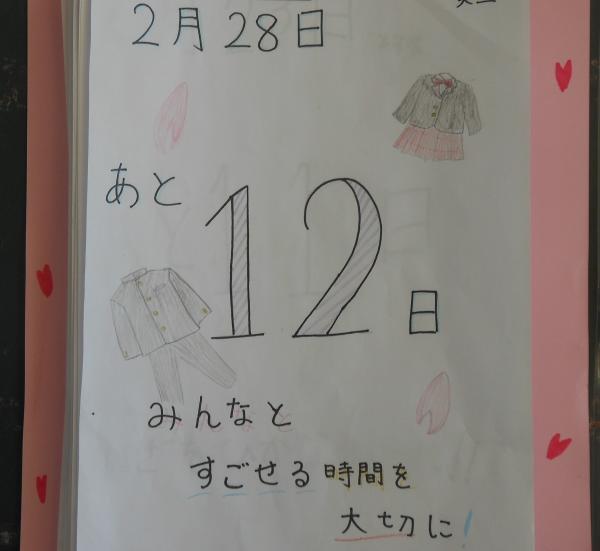 2月28日
あと
12日
みんなと
すごせる時間を
大切に!